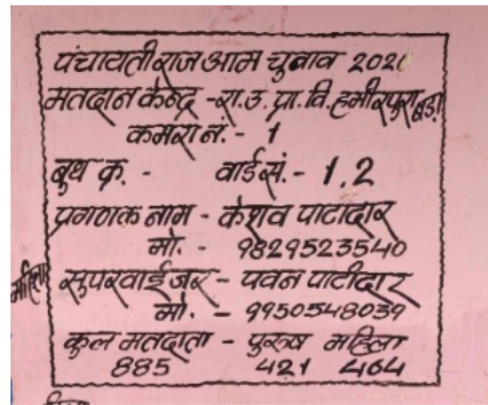 पंचायतीराज आम चुनाव 2021
मतदान केन्द्र - रा.उ.प्रा.वि.हमीरपुरा बड़ा
कमरा नं. - 1
बुथ क्र. - वार्ड सं. - 1,2
प्रगणक नाम - केशव पाटीदार
मो. - 9829523540
सुपरवाईजर - पवन पाटीदार
मो. - 9950548039
कुल मतदाता - पुरुष महिला
885 421 464
महिला